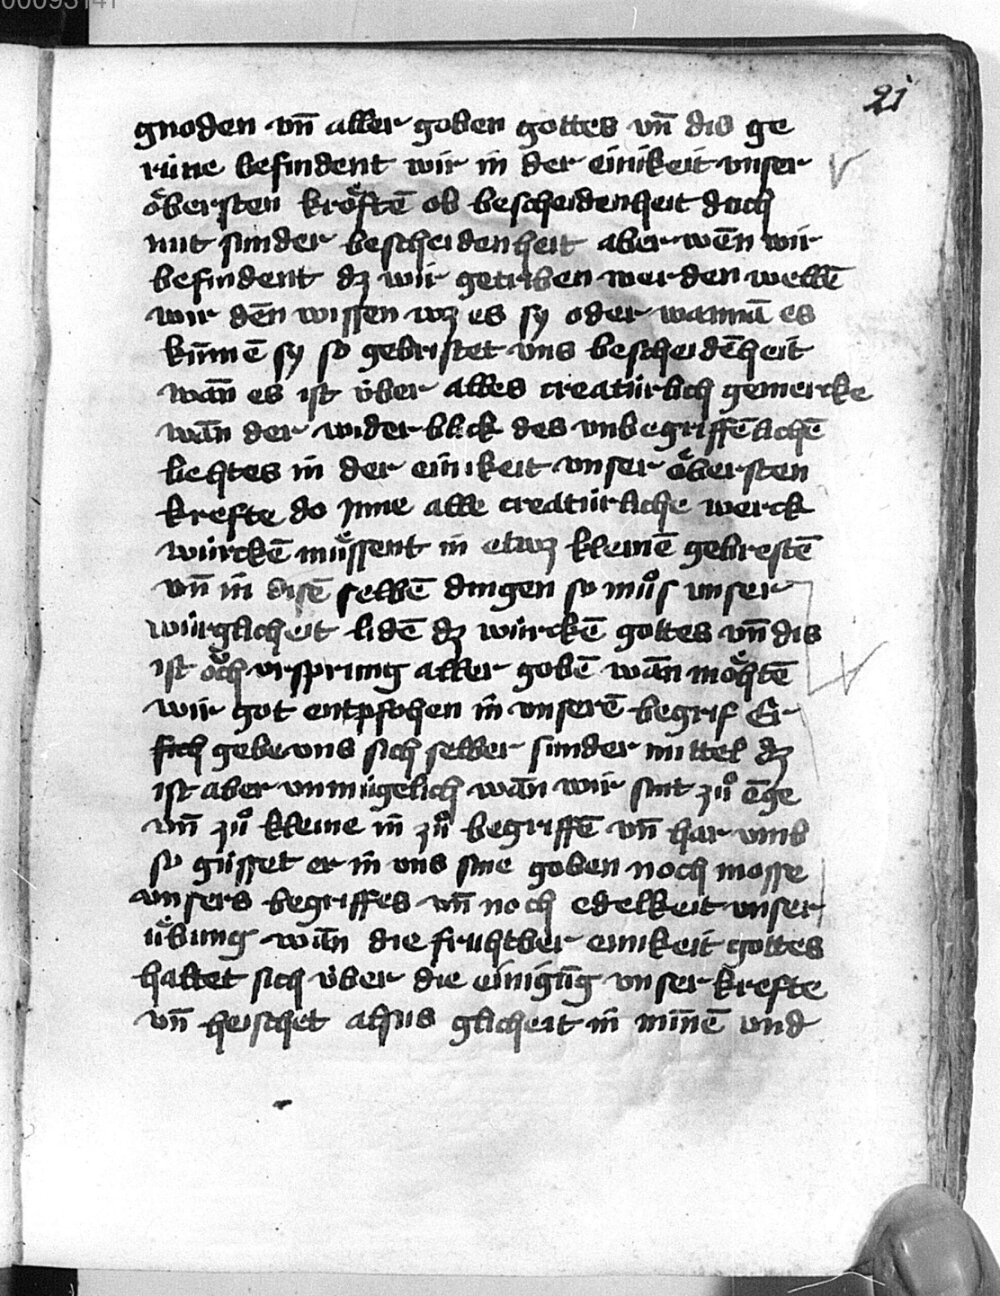 00093141
21
gnoden vn̄ aller goben gottes vn̄ dis ge
rúne befindent wir in der einikeit vnser
oͤbersten kroͤftē ob bescheidenheit doch
nút sunder bescheidenheit aber wēn wir
befindent dz wir getriben werden wellē
wir dēn wissen wz es sy oder wannā es
kūmē sy so gebristet vns bescheidēheit
wān es ist über alles creatúrlich gemercke
wān der widerblick des vnbegriffēlichē
liehtes in der einikeit vnser oͤbersten
krefte do jnne alle creatúrliche werck
würckē muͤssent in etwz kleinē gebrestē
vn̄ in disē selbē dingen so muͦs vnser
würglicheit lidē dz würckē gottes vn̄ dis
ist oͮch vrsprung aller gobē wān moͤhtē
wir got entpfohen in vnserē begrif Er
sich gebe vns sich selber sunder mittel dz
ist aber vnmúgelich wān wir sint zuͦ ēge
vn̄ zuͦ kleine in zuͦ begriffē vn̄ har vmb
so gússet er in vns sine goben noch mosse
vnsers begriffes vn̄ noch edelkeit vnser
uͤbung wān die fruhtber einikeit gottes
haltet sich über die einigūg vnser krefte
vn̄ heischet alsus glicheit in mīnē vnd